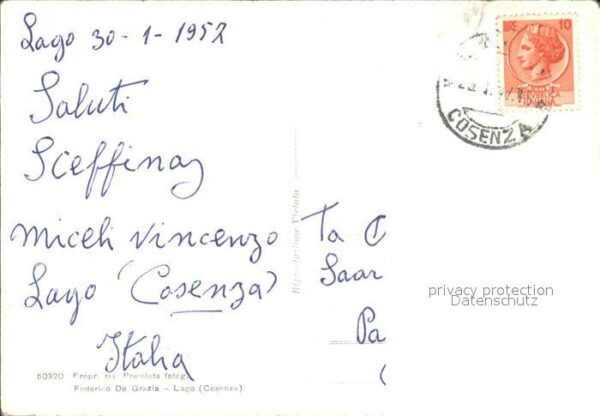 Lago 30-1-1957
Saluti
Sceffinay
Miceli Vincenzo
Lago (Cosenza)
Italia
60320 Propr. ris. Premiata fotog.
Federico De Grazia - Lago (Cosenza)
Riproduzione Vietata
LIRE 10
COSENZA
Ta
Saar
Pa
(
privacy protection
Datenschutz